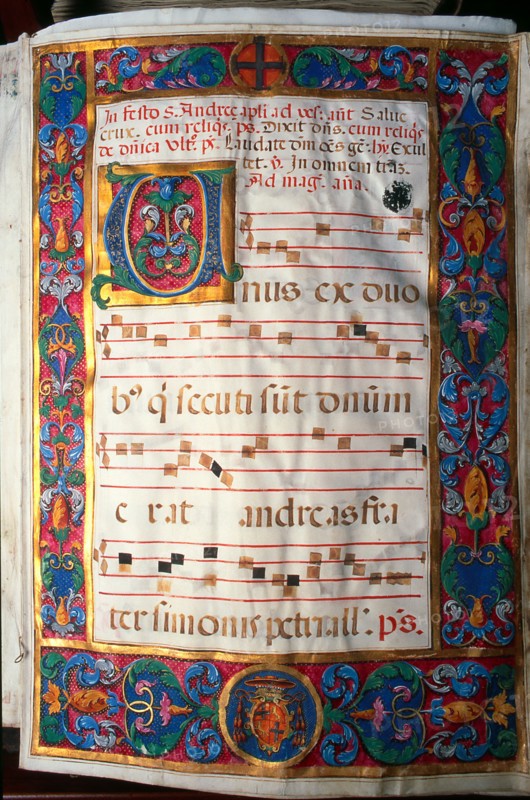 In festo S. Andreę apłi ad ves̄. añt Salue
crux. cum reliq̄s. ps̄. Dixit dn̄s. cum reliq̄s
de dn̄ica vltͦ. ps̄. Laudate dn̄m oēs gē: hȳ. Exul
tet. ꝟ. In omnem traz̄.
Ad mag̃. aña.
Unus ex duo
bꝰ q̇ secuti sūt dn̄um
erat andreas fra
ter simonis petri all̄: ps̄.